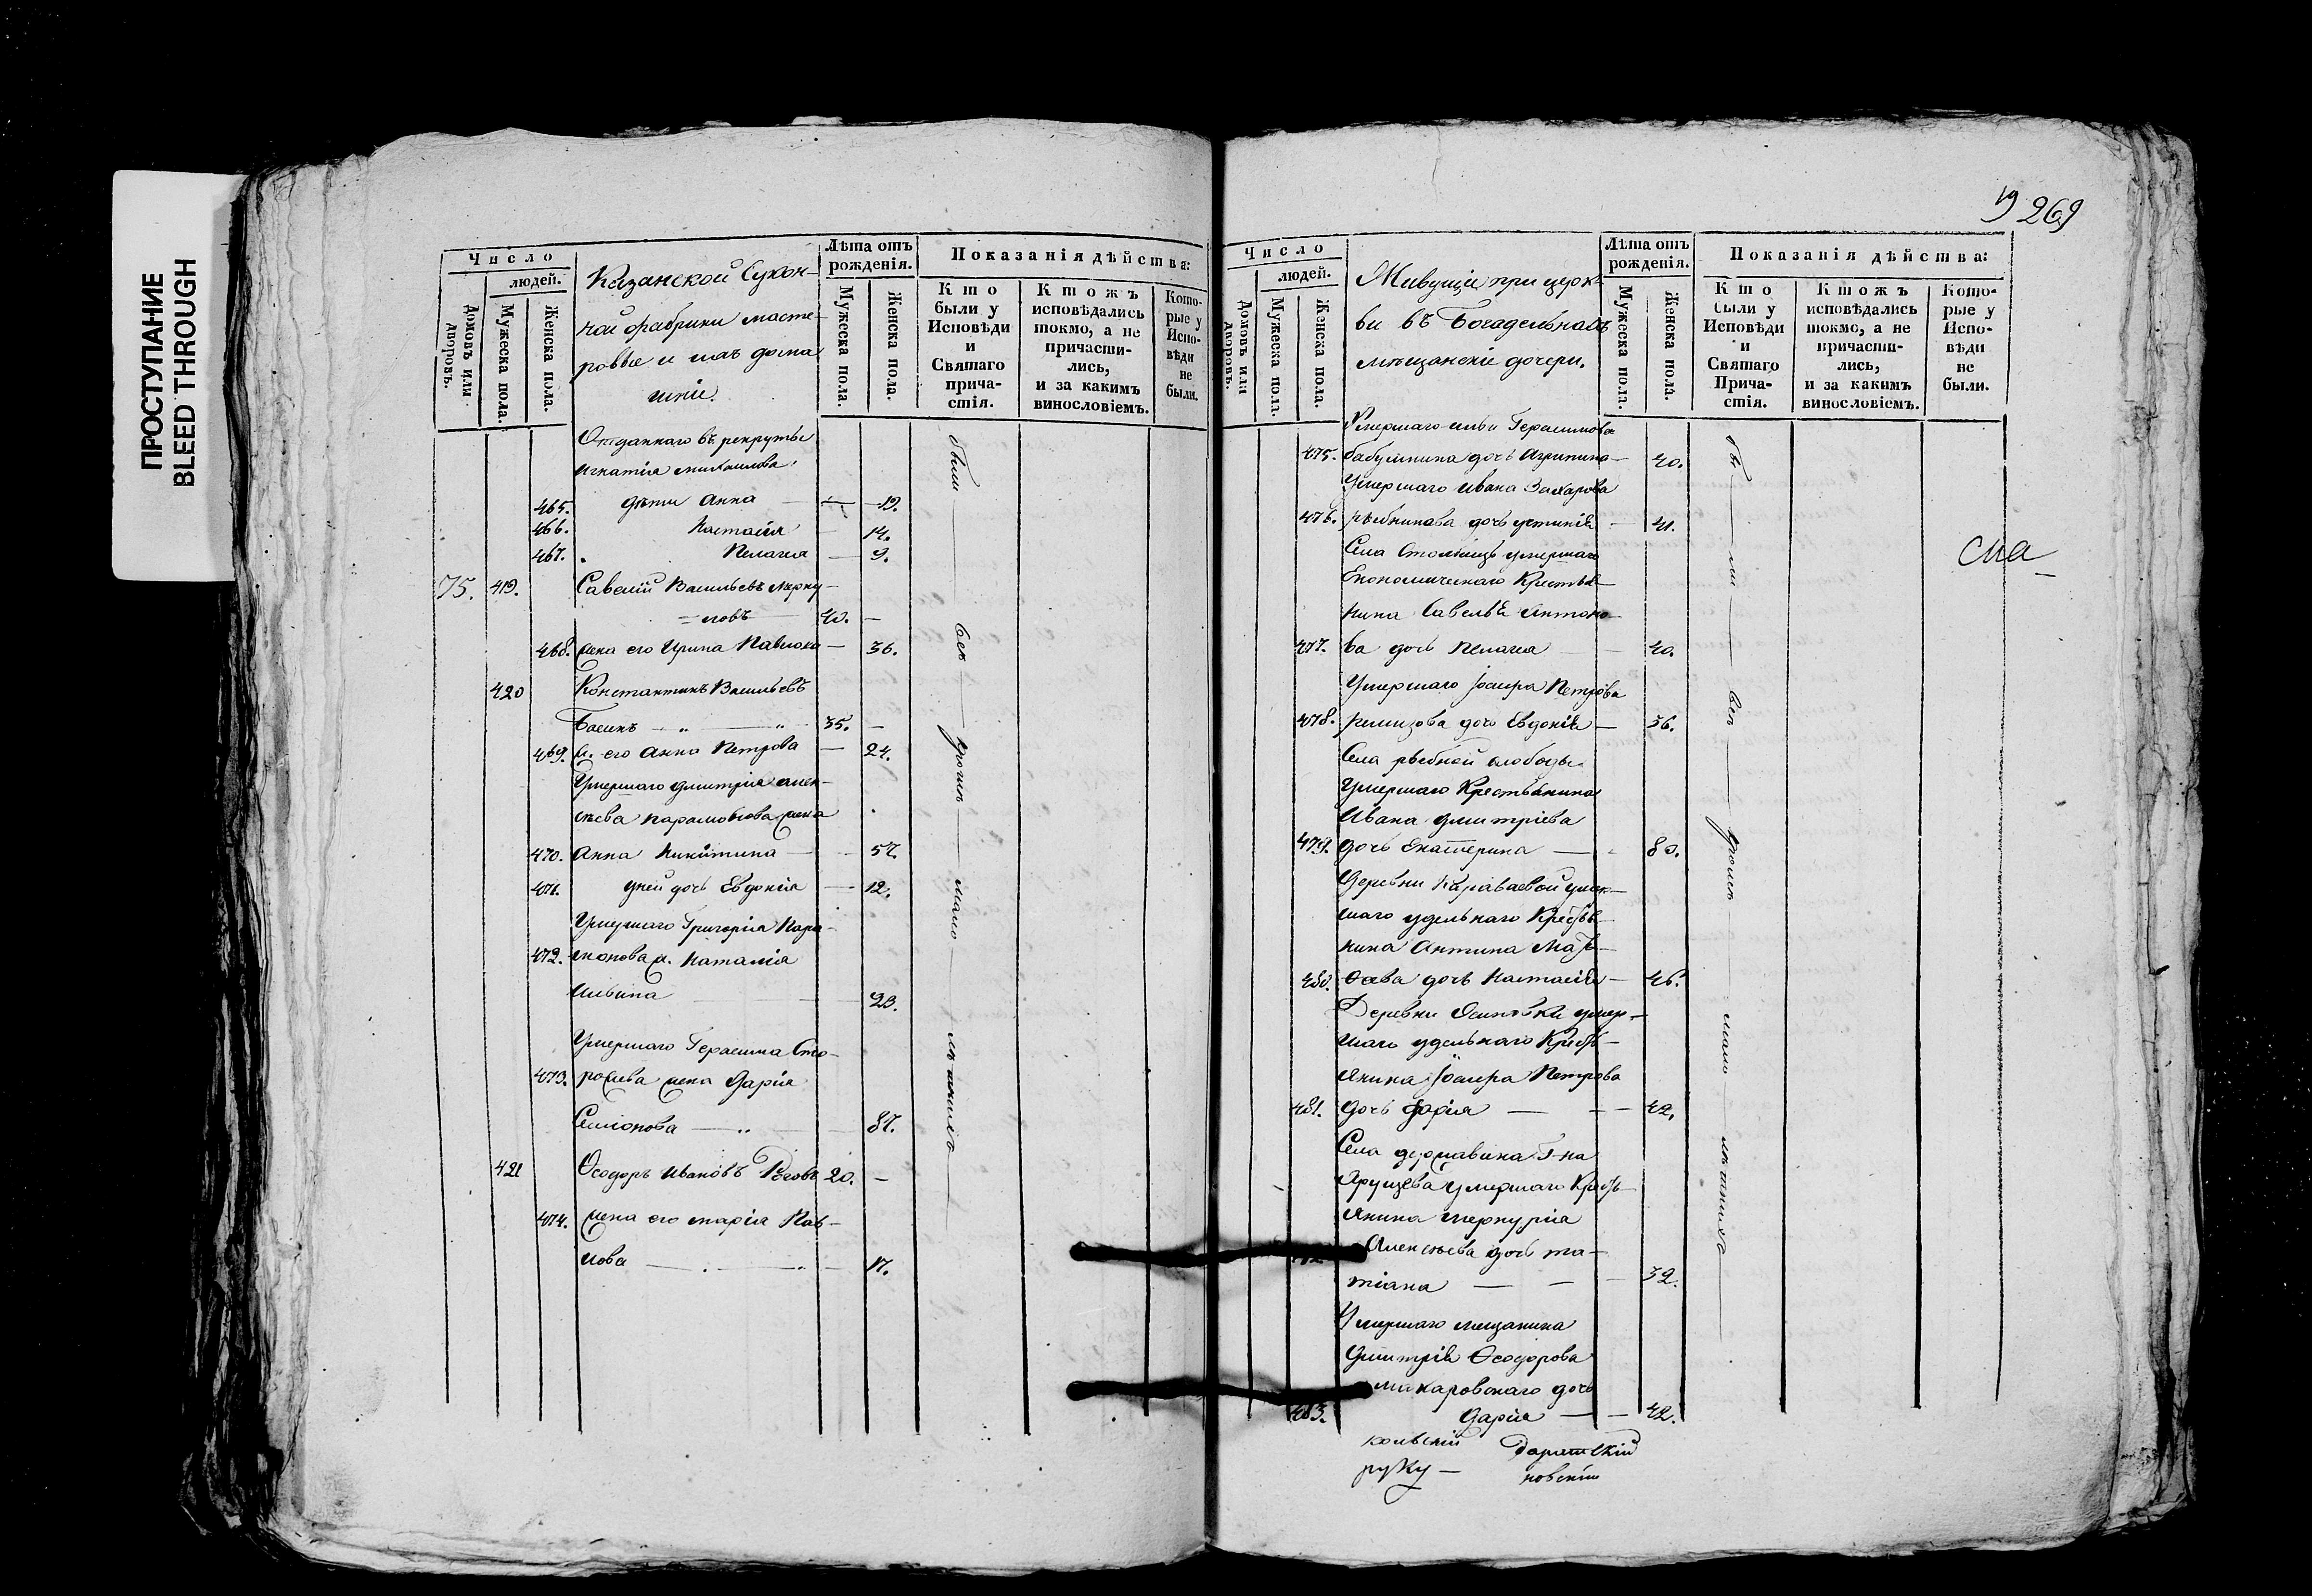 ПРОСТУПАНИЕ
BLEED THROUGH
Число
людей.
Домовъ или дворовъ.
Мужеска пола.
Женска пола.
Казанской Сукон-
ной фабрики масте-
ровые и ихъ домаш
шніе.
Лѣта отъ
рожденія.
Мужеска пола.
Женска пола.
Показанія дѣйства:
Кто
были у
Исповѣди
и
Святаго
прича-
стія.
Ктожъ
исповѣдались
токмо, а не
причасти-
лись,
и за какимъ
винословіемъ.
Кото-
рые у
Испо-
вѣди
не
были.
Отданнаго въ рекруты
Игнатія Михаилова
465. дѣти Анна — 19.
466. Настасія — 14.
467. Пелагея — 9.
75. 419. Савелій Васильевъ Мерку-
ловъ 40. —
468. жена его Ирина Павлова — 36.
420 Константинъ Васильевъ
Басинъ — 35. —
469. ж. его Анна Петрова — 24.
Умершаго Дмитрія Алек-
сѣева жена
470. Анна Никитина — 57.
471. у ней дочь Евдокія — 12.
Умершаго Григорія Пара-
472. монова ж. Наталія
Ильина 23.
Умершаго Герасима Сто-
473. рожева жена Дарія
Семіонова — 87.
421 Ѳеодоръ Ивановъ 20. —
474. жена его Марія Пав-
лова — 17.
были — всѣ — кромѣ — мало — лѣтнихъ
19 269
Число
людей.
Домовъ или дворовъ.
Мужеска пола.
Женска пола.
Живущіе при церк-
ви въ Богадельнахъ
мѣщанскіе дочери.
Лѣта отъ
рожденія.
Мужеска пола.
Женска пола.
Показанія дѣйства:
Кто
были у
Исповѣди
и
Святаго
Прича-
стія.
Ктожъ
исповѣдались
токмо, а не
причасти-
лись,
и за какимъ
винословіемъ.
Кото-
рые у
Испо-
вѣди
не
были.
Умершаго Ильи Герасимова
475. бабушкина дочь Агрипина — 40.
Умершаго Ивана Захарова
476. рыбникова дочь Устинія — 41.
Села умершаго
Економическаго Крестья-
нина Савелья Антоно
477. ва дочь Пелагея — 40.
Умершаго Іосифа Петрова
478. ремизова дочь Евдокія — 56.
Села рыбной слободы
Умершаго Крестьянина
Ивана Дмитріева
479. дочь Екатерина — 80.
Деревни Караваевой умер-
шаго удельнаго Кресть
нина Антипа Мат-
480. Ѳеева дочь Настасія — 46.
Деревни Осиновки умер-
шаго удельнаго Кресть-
янина Іосифа Петрова
481. дочь Дарія — 42.
Села державина Г-на
умершаго Кресть
янина Меркурія
Алексѣева дочь Та-
тіана — 32.
Умершаго мещанина
Дмитрія Ѳеодорова
макаровскаго дочь
483. Дарія — 42.
бы — ли — всѣ — кромѣ — мало — лѣтнихъ
руку —